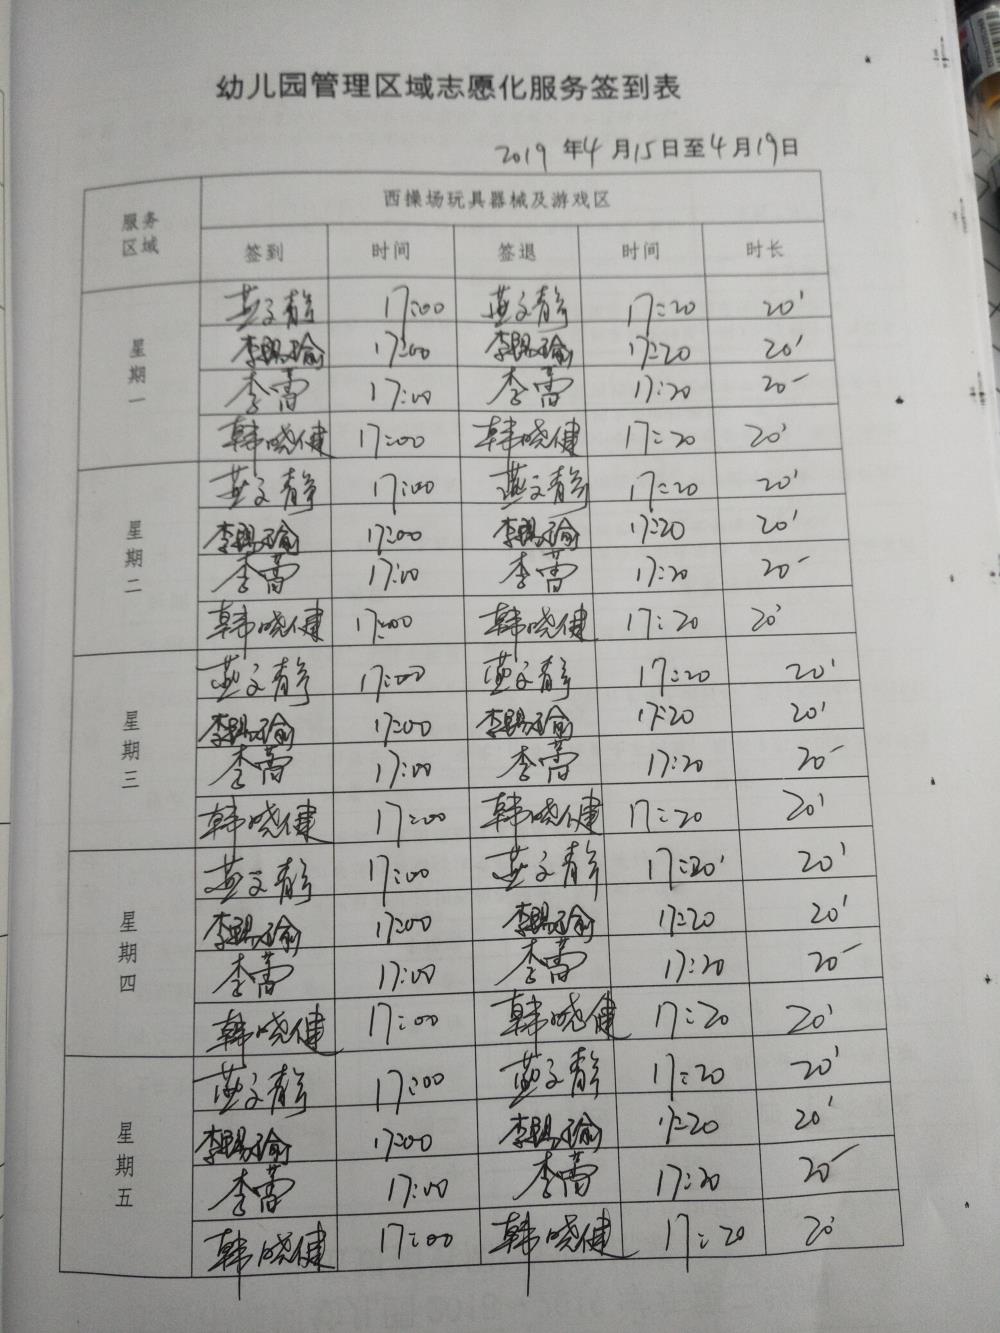 幼儿园管理区域志愿化服务签到表
2019 年4月15日至4月19日
服务区域 西操场玩具器械及游戏区
签到 时间 签退 时间 时长
星期一 燕文静 17:00 燕文静 17:20 20'
李赐瑜 17:00 李赐瑜 17:20 20'
李蕾 17:00 李蕾 17:20 20'
韩晓健 17:00 韩晓健 17:20 20'
星期二 燕文静 17:00 燕文静 17:20 20'
李赐瑜 17:00 李赐瑜 17:20 20'
李蕾 17:00 李蕾 17:20 20'
韩晓健 17:00 韩晓健 17:20 20'
星期三 燕文静 17:00 燕文静 17:20 20'
李赐瑜 17:00 李赐瑜 17:20 20'
李蕾 17:00 李蕾 17:20 20'
韩晓健 17:00 韩晓健 17:20 20'
星期四 燕文静 17:00 燕文静 17:20' 20'
李赐瑜 17:00 李赐瑜 17:20 20'
李蕾 17:00 李蕾 17:20 20'
韩晓健 17:00 韩晓健 17:20 20'
星期五 燕文静 17:00 燕文静 17:20 20'
李赐瑜 17:00 李赐瑜 17:20 20'
李蕾 17:00 李蕾 17:20 20'
韩晓健 17:00 韩晓健 17:20 20'